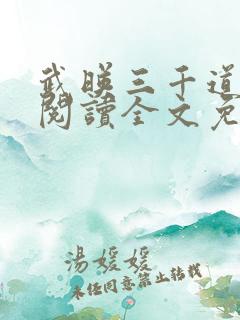 武暎三千道
閱讀全文免
湯媛媛
未經同意禁止轉載